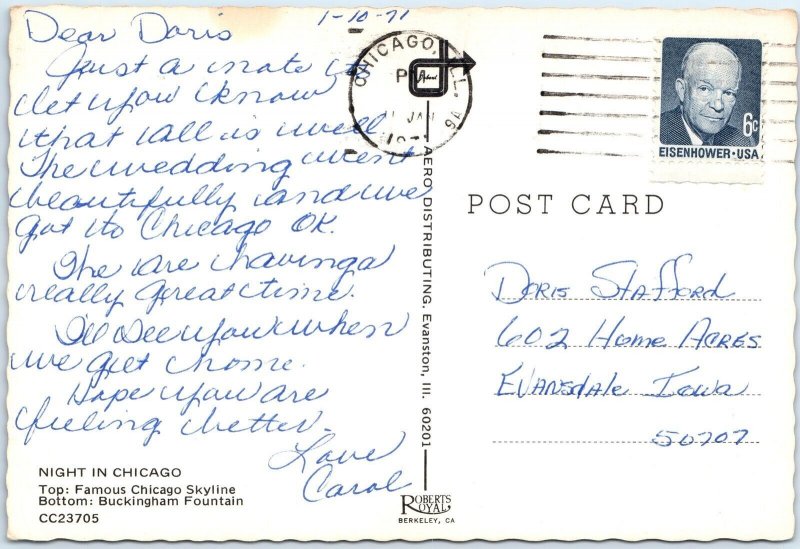 1-10-71
Dear Doris
Just a note to
let you know
that all is well.
The wedding went
beautifully and we
got to Chicago OK.
We are having a
really great time.
I'll see you when
we get home.
Hope you are
feeling better.
Love
Carol
NIGHT IN CHICAGO
Top: Famous Chicago Skyline
Bottom: Buckingham Fountain
CC23705
AERO DISTRIBUTING. Evanston, Ill. 60201
ROBERTS
ROYAL
BERKELEY, CA
CHICAGO, ILL.
JAN
6c
EISENHOWER·USA
POST CARD
DORIS STAFFORD
602 HOME ACRES
EVANSDALE IOWA
50707